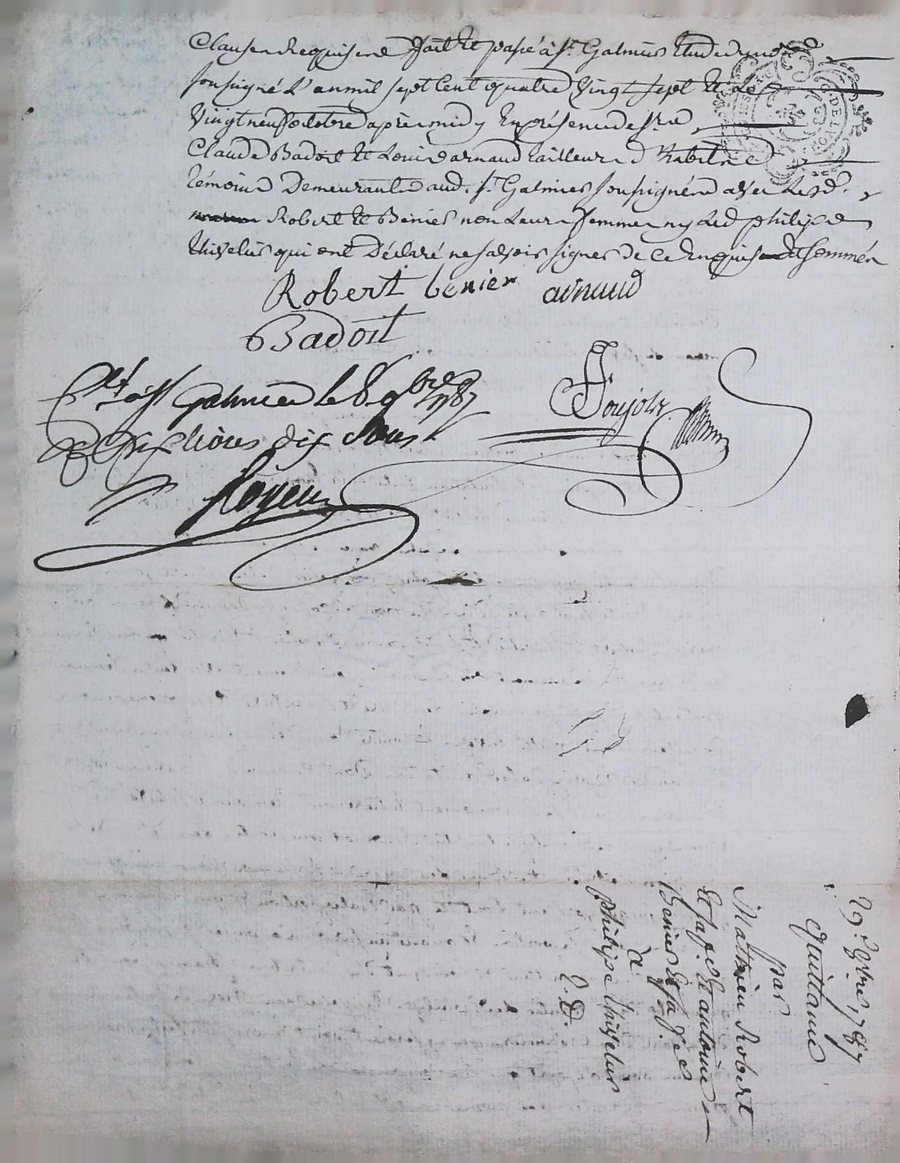 Clauses Requises fait et passé à St. Galmier Etude du no.re
soussigné L'an mil sept cent quatre vingt sept et Le
vingt neuf octobre après midy En présence de Sr.
Claude Badoit et Louis arnaud tailleurs d'habits
témoins Demeurants aud. St. Galmier soussignés avec Lesd.
Robert et Benier non Leurs femmes ny Led philipe
thivelier qui ont Déclaré ne savoir signer de ce Enquis et sommés
Robert benier arnaud
Badoit
Clé à St Galmier le 8 9bre 1787
Six livres dix sous
Royeu
29. 8bre 1787
quittance
par
Mathieu Robert
Et sa f. et antoine
Benier Et sa f.
à
philipe thivelier
E. D.